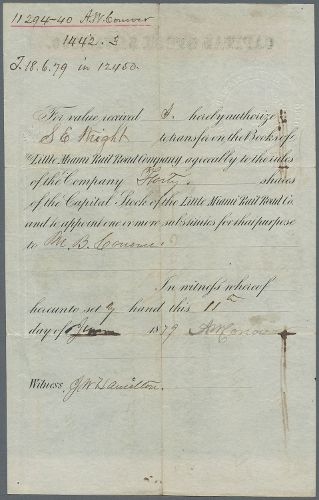 11294-40 A.W. Conover
1442.3
T. 18.6.79 in 12450.
For value received I hereby authorize
S E Wright to transfer on the Books of
the Little Miami Rail Road Company agreeably to the rules
of the Company Forty shares
of the Capital Stock of the Little Miami Rail Road Co
and to appoint one or more substitutes for that purpose
to B. Conover
In witness whereof
hereunto set my hand this 11th
day of June 1879 A W Conover
Witness, J W Hamilton.